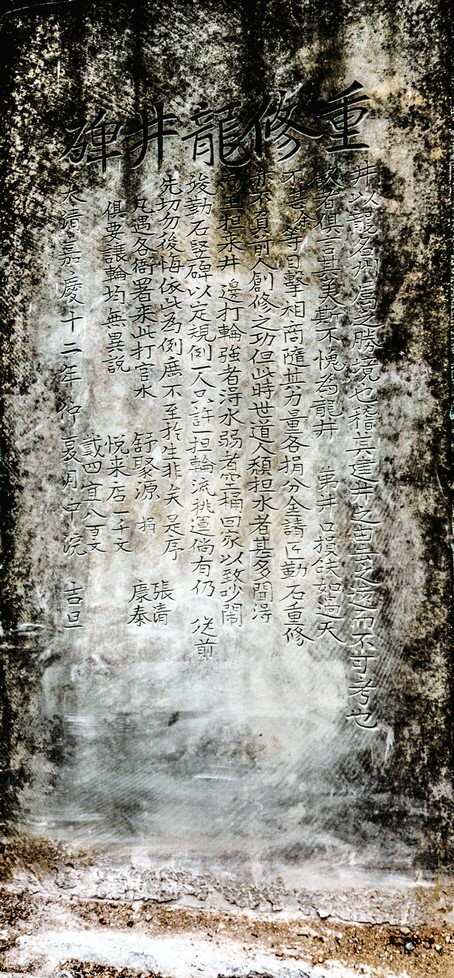 重修龍井碑
井以龍名州屬之勝境也稽其建井之由年久遠而不可考也
者俱言其美斯不愧為龍井 第井口損缺如遇天
不甚今等目擊相商隨其力量各捐分金請匠勤石重修
不負前人創修之功但此時世道人頹担水者甚多間淂
担来井邊打輪強者淂水弱者空桶回家以致吵鬧
後勤石竪碑以定規例一人只許担輪流挑運倘有仍從前
先切勿後悔依此為例庶不至於生非矣是序
凡遇各衙署来此打官水 舒聚源 捐 張清 康泰
俱要讓輪均無異說 悅来店一千文
載四宜八百文
大清嘉慶十二年仲夏月中浣 吉旦